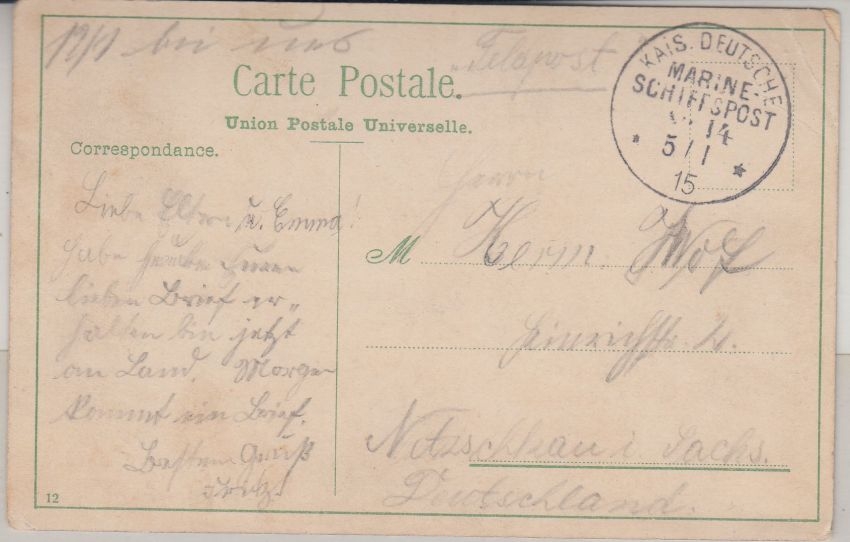 19/1 bei uns
"Feldpost"
Carte Postale.
Union Postale Universelle.
KAIS. DEUTSCHE
MARINE-
SCHIFFSPOST
14
5/1
15
Correspondance.
Liebe Eltern u. Emma!
habe heute Euren
lieben Brief er-
halten bin jetzt
an Land. Morgen
kommt ein Brief.
Besten Gruß
Herrn
M Herm. Wolf
Heinrichstr. 4.
Netzschkau i. Sachs.
Deutschland.
12